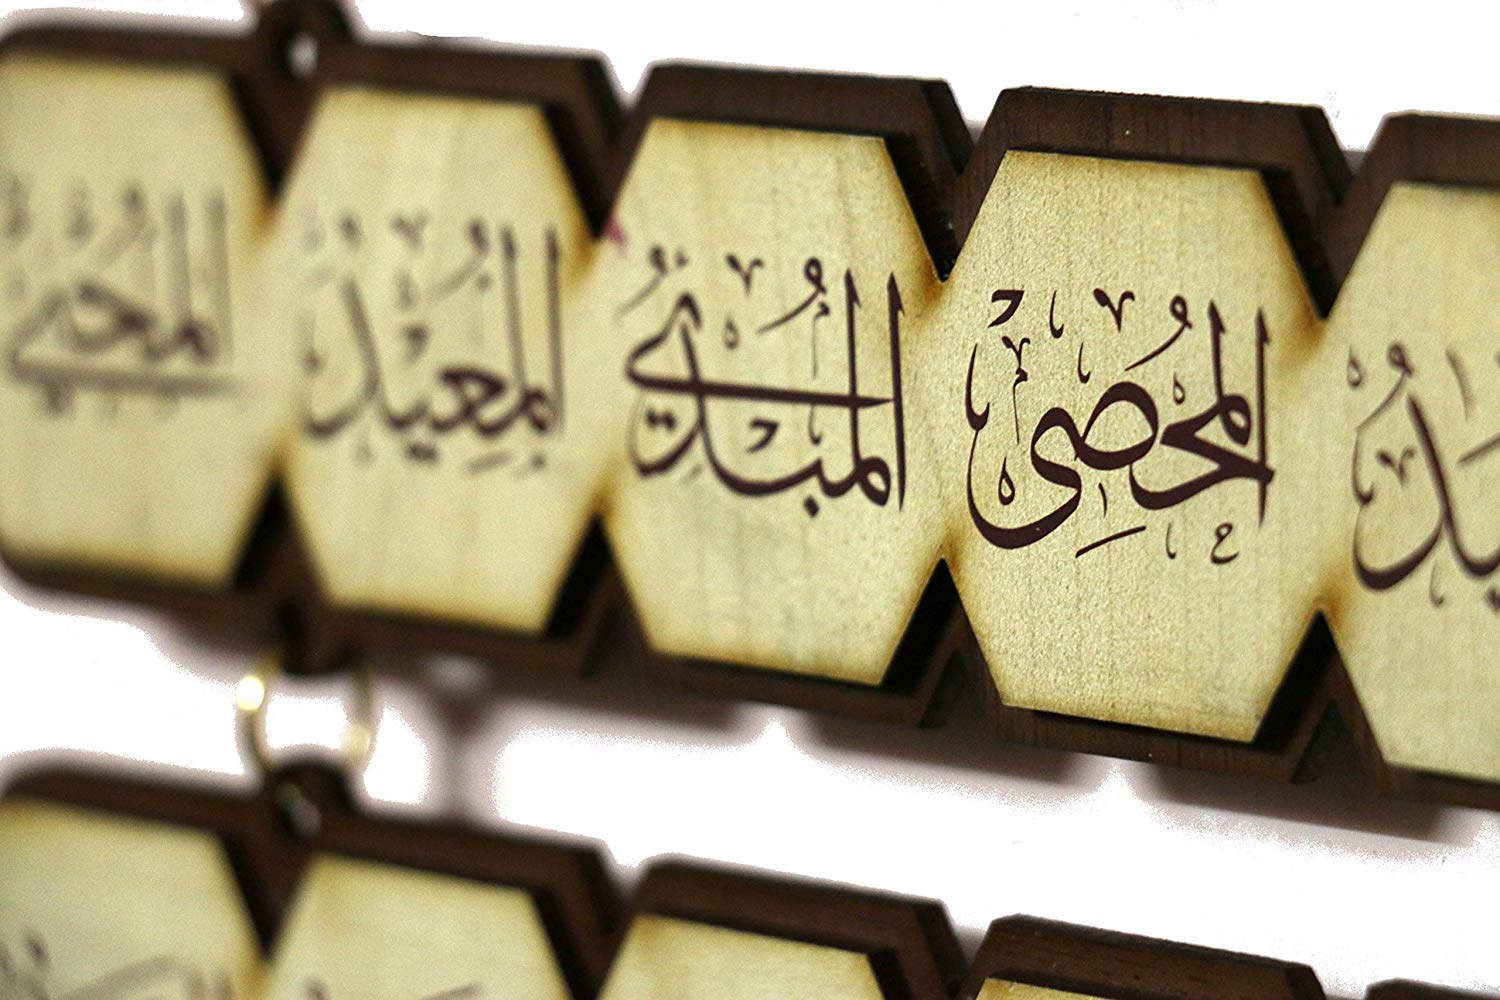 المُحْصِي المُبْدِئُ المُعِيدُ المُحْيِي